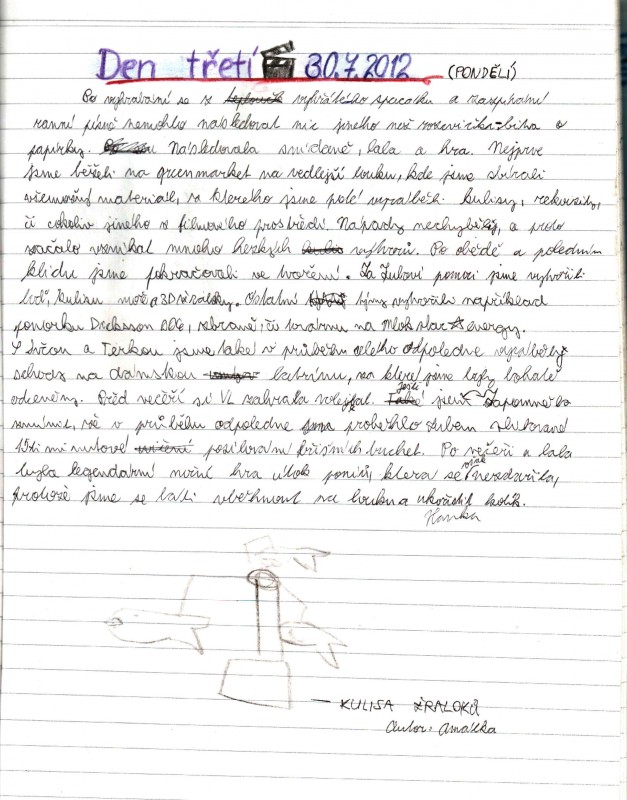 Den třetí 30.7.2012 (PONDĚLÍ)
Po vyhrabání se z vyhřátého spacáku a zazpívání
ranní písně nemohlo následovat nic jiného než rozcvička-bitva o
papírky. Následovala snídaně, lala a hra. Nejprve
jsme běželi na greenmarket na vedlejší louku, kde jsme sbírali
všemožný materiál, z kterého jsme poté vyráběli kulisy, rekvizity,
či cokoliv jiného z filmového prostředí. Nápady nechyběly, a proto
začalo vznikat mnoho hezkých výtvorů. Po obědě a poledním
klidu jsme pokračovali ve tvoření. Za Zubový pomoci jsme vytvořili
loď, kulisu moře a 3D žraloky. Ostatní týmy vytvořili například
ponorku, zbraně, či továrnu na energy.
S a Terkou jsme také v průběhu celého odpoledne vyráběly
schody na dámskou latrínu, za které jsme byly bohatě
odměněny. Před večeří si VL zahrála volejbal. Ještě jsem zapomněla
zmínit, že v průběhu odpoledne proběhlo
15ti minutové posilování břišních buchet. Po večeři a lala
byla legendární noční hra útok poníků, která se však nezdařila,
protože jsme se báli vběhnout na louku a ukořistit kolík.
Hanka
KULISA ŽRALOKŮ
Autor: Amálka